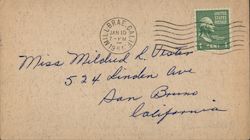 MILLBRAE, CALIF.
JAN 10
7-PM
Miss Mildred L. Oester
524 Linden Ave
San Bruno
California